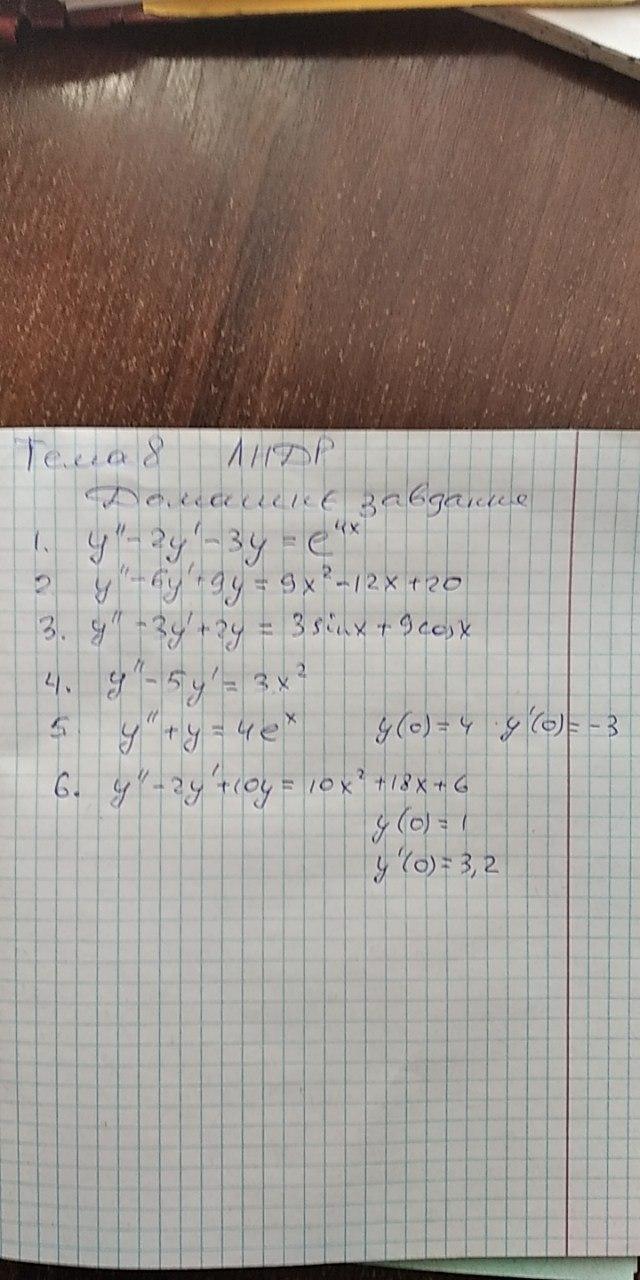 Тема 8 ЛНДР
Домашнє завдання
1. y'' - 2y' - 3y = e^4x
2 y'' - 6y' + 9y = 9x² - 12x + 20
3. y'' - 3y' + 2y = 3sinx + 9cosx
4. y'' - 5y' = 3x²
5 y'' + y = 4e^x y(0) = 4 y'(0) = -3
6. y'' - 2y' + 10y = 10x² + 18x + 6
y(0) = 1
y'(0) = 3,2